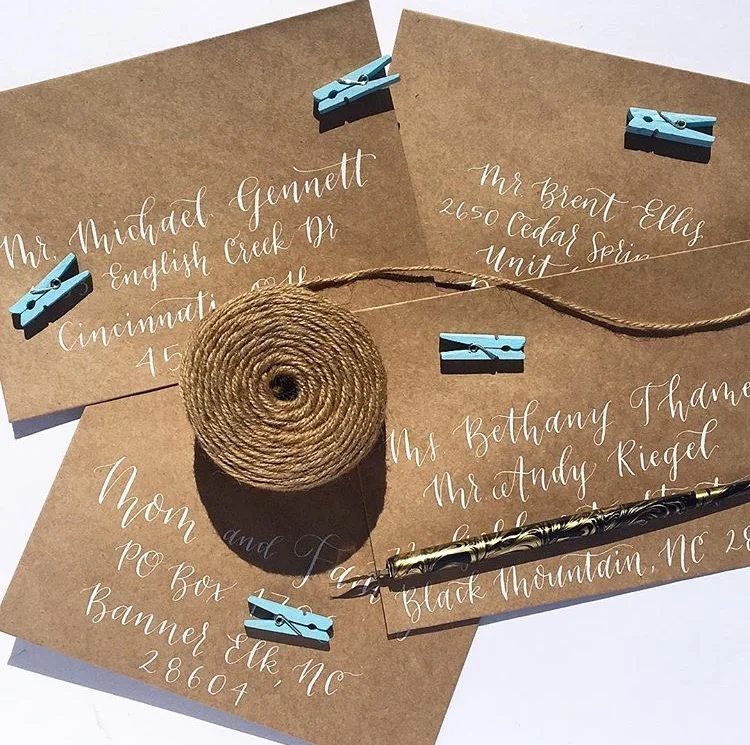 Mr. Michael Gennett
English Creek Dr
Cincinnati
45
Mr Brent Ellis
2650 Cedar
Unit
Ms. Bethany
Mr Andy Riegel
Black Mountain, NC 28
Mom and
PO Box
Banner Elk, NC
28604